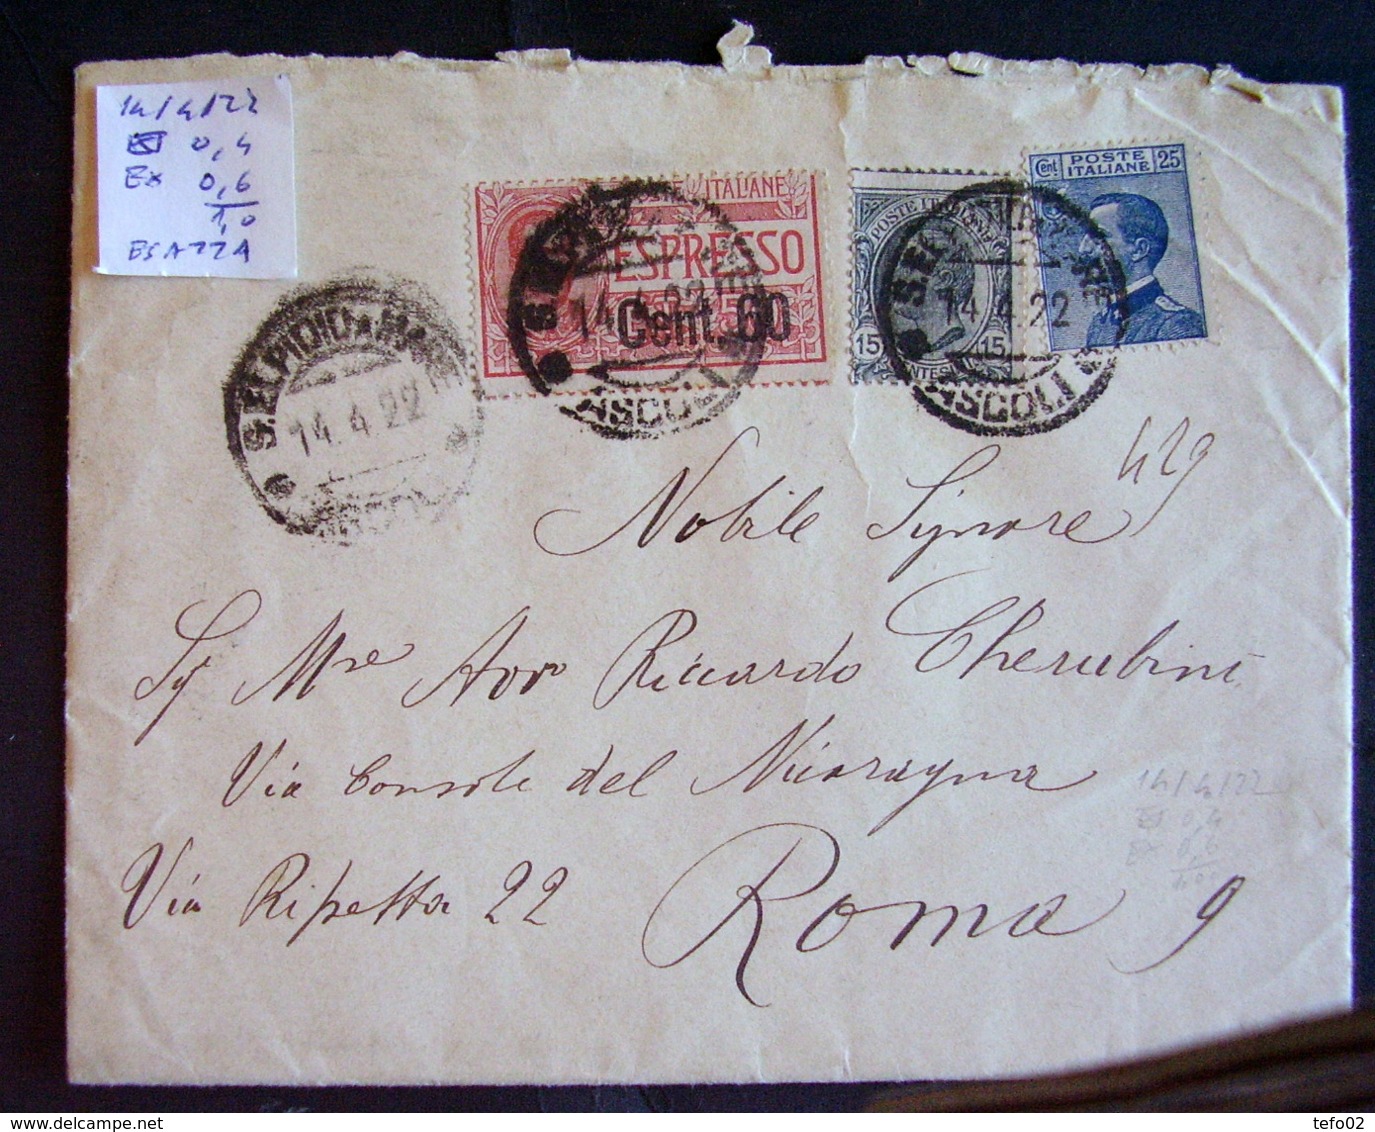 14/4/22
0,4
Ex 0,6
1,0
ESATTA
POSTE ITALIANE
ESPRESSO
Cent. 60
POSTE ITALIANE
15 15
CENTESIMI
Cent POSTE 25
ITALIANE
S.ELPIDIO A MARE
14.4.22
ASCOLI
S.ELPIDIO A MARE
14.4.22
ASCOLI
S.ELPIDIO A MARE
14.4.22
ASCOLI
429
Nobile Signore
Sg Mre Avv Riccardo Cherubini
Via Console del Nicaragua
Via Ripetta 22 Roma 9
14/4/22
0,4
Ex 0,6
1,00
tefo02